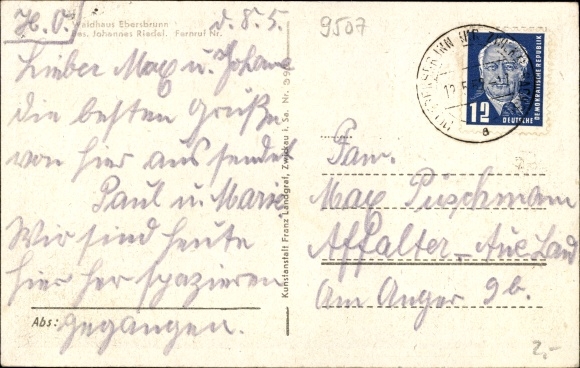 H. O. d. 8. 5.
Waldhaus Ebersbrunn
Bes. Johannes Riedel. Fernruf Nr.
Lieber Max u. Johanne
die besten Grüße
von hier aus sendet
Paul u. Marie
Wir sind heute
hier her spazieren
gegangen.
Abs:
Kunstanstalt Franz Landgraf, Zwickau i. Sa. Nr.
9507
12
DEUTSCHE
DEMOKRATISCHE REPUBLIK
a
Fam.
Max Püschmann
Affalter - Aue Land
Am Anger 9b.
2,-